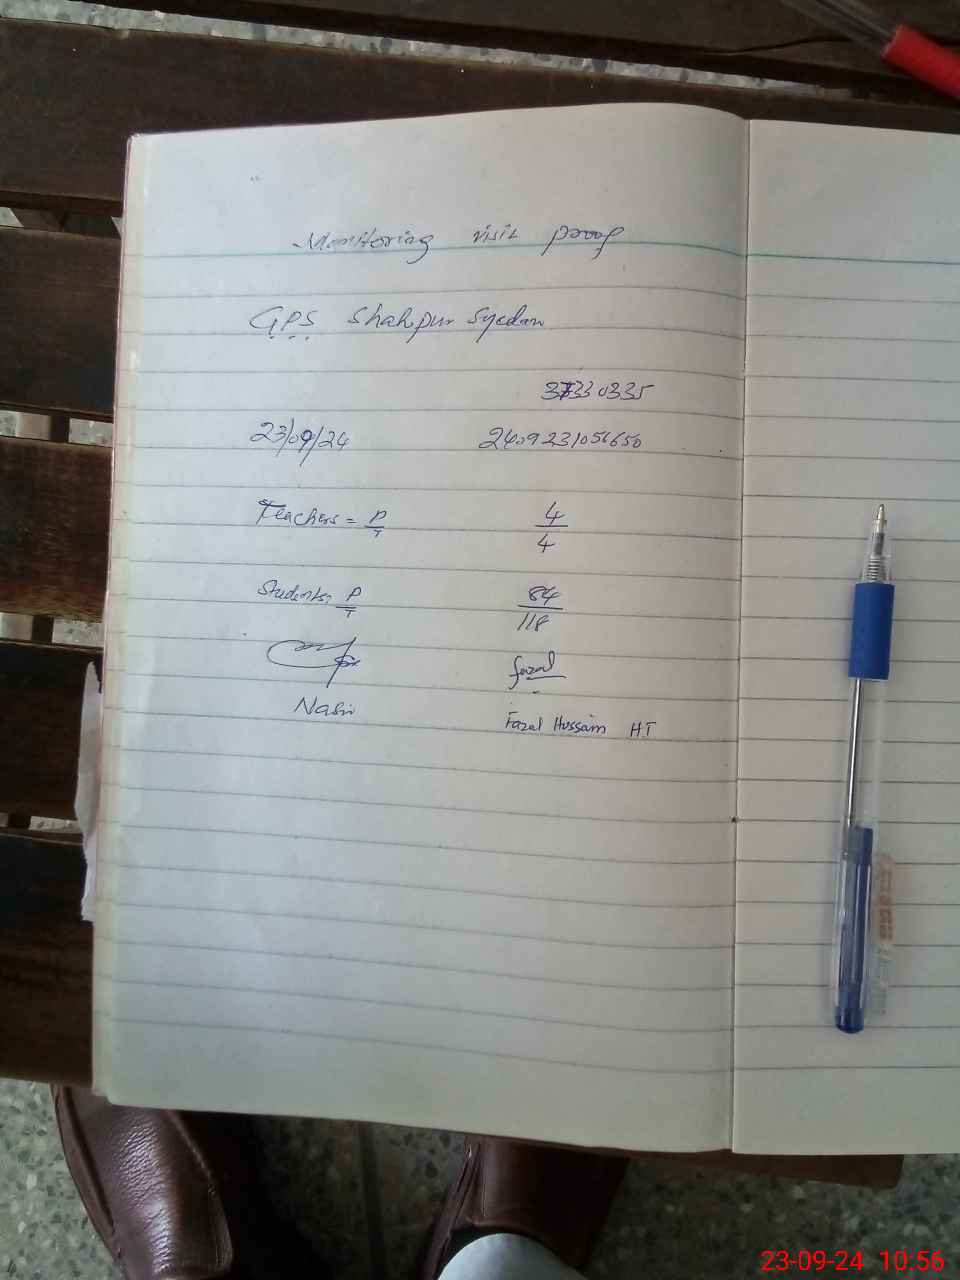 Monitoring visit proof
GPS Shahpur Syedan
37330335
23/09/24 2409231056650
Teachers = P/T 4/4
Students = P/T 84/118
fazal
Nasir Fazal Hussain HT
23-09-24 10:56